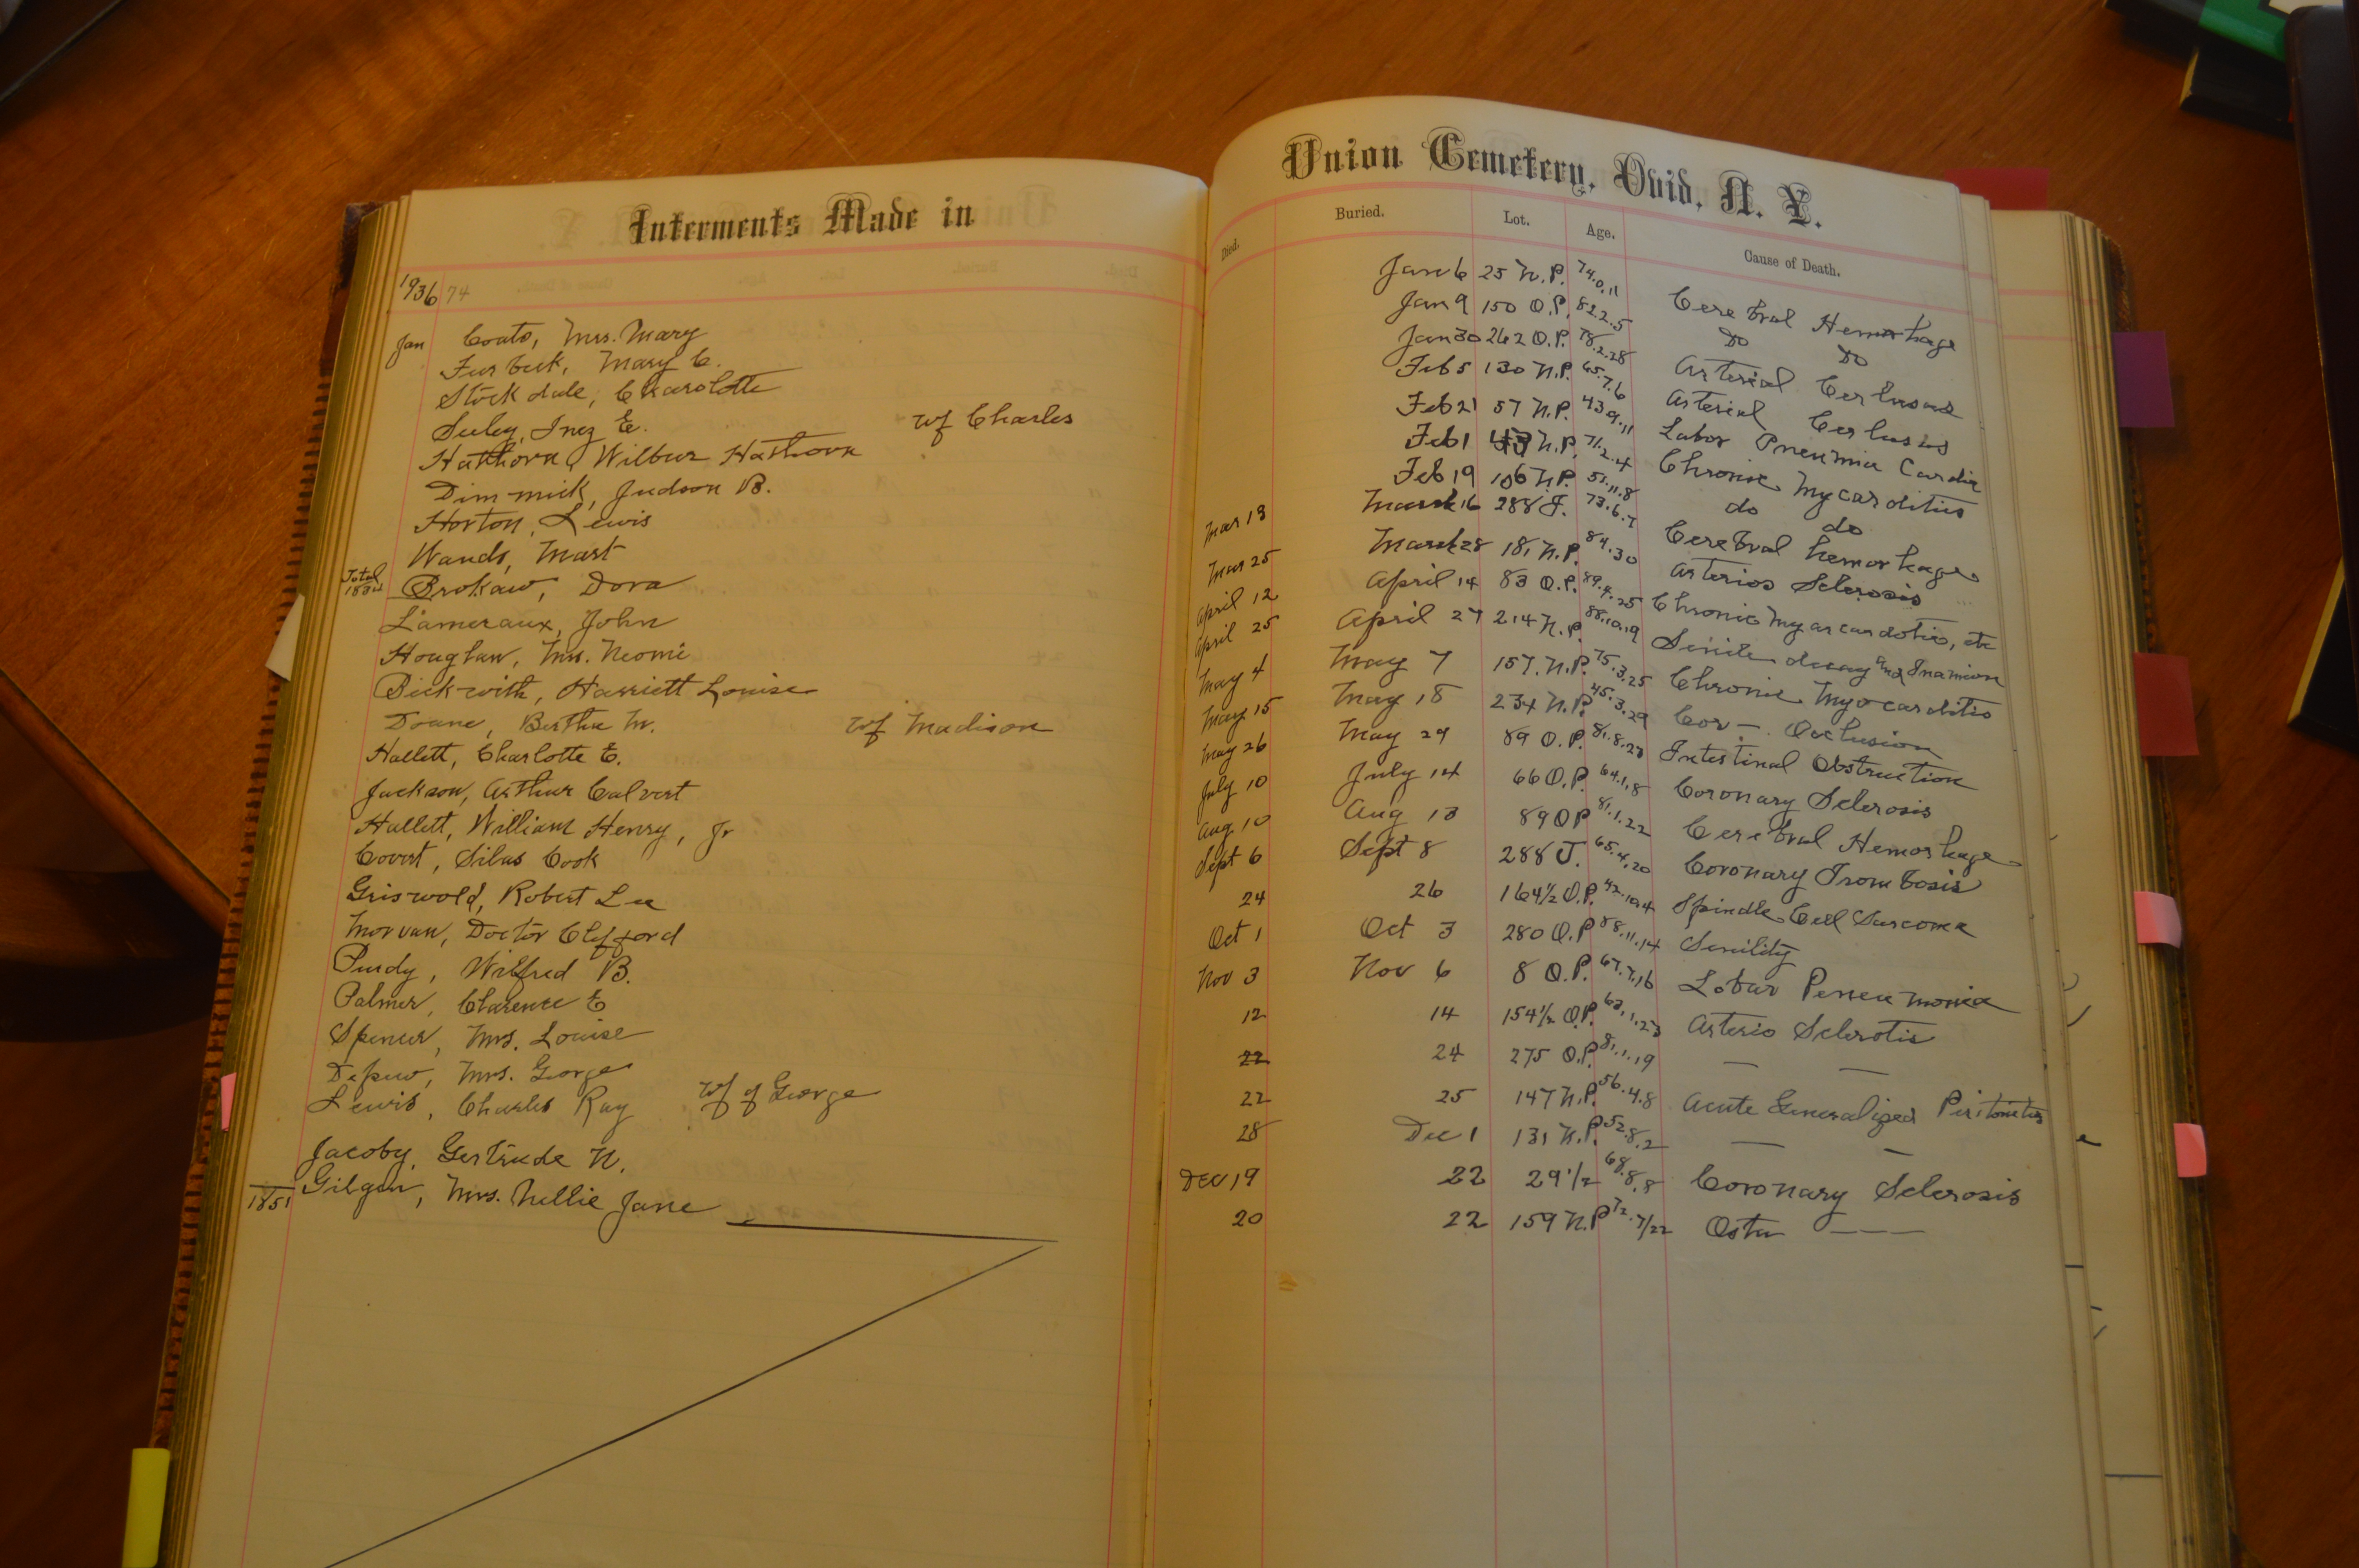 Interments Made in
1936 74
Jan Coats, Mrs. Mary
Furbeck, Mary C.
Stockdale, Charolotte
Seeley, Inez E. wf Charles
Hathorn, Wilbur Hathorn
Dimmick, Judson B.
Horton, Lewis
Wands, Mart
Total
Brokaw, Dora
Lameraux, John
Houghan, Mrs. Neomi
Bickwith, Harriett Louise
Doane, Bertha M. wf Madison
Hallett, Charlotte E.
Jackson, Arthur Calvert
Hallett, William Henry, Jr
Covert, Silas Cook
Griswold, Robert Lee
Morvan, Doctor Clifford
Purdy, Wilfred B.
Palmer, Clarence E
Spencer, Mrs. Louise
Depew, Mrs. George wf of George
Lewis, Charles Ray
Jacoby, Gertrude N.
1851 Gilgen, Mrs. Nellie Jane
Union Cemetery, Ovid, N. Y.
Died. Buried. Lot. Age. Cause of Death.
Jan 6 25 N.P. 74.0.11 Cerebral Hemorhage
Jan 9 150 O.P. 82.2.5 Do Do
Jan 30 262 O.P. 78.2.28 Arterial
Feb 5 130 N.P. 65.7.6 Arterial
Feb 21 57 N.P. 43.9.11 Labor Pneumia Cardia
Feb 1 43 N.P. 71.2.4 Chronic Mycarditius
Feb 19 106 N.P. 51.11.8 do do
Mar 13 March 16 288 J. 73.6.7 Cerebral hemorhage
Mar 25 March 28 181 N.P. 84.30 Arterios Sclerosis
April 12 April 14 83 O.P. 89.4.25 Chronic Myarcardotis, etc
April 25 April 27 214 N.P. 88.10.19 Senile decay and Inanion
May 4 May 7 157 N.P. 75.3.25 Chronic Myocarditis
May 15 May 18 234 N.P. 45.3.29 Cor - Occlusion
May 26 May 29 89 O.P. 81.8.28 Intestinal Obstruction
July 10 July 14 66 O.P. 64.1.8 Coronary Sclerosis
Aug 10 Aug 13 89 O P 81.1.22 Cerebral Hemorhage
Sept 6 Sept 8 288 J. 65.4.20 Coronary Trombosis
24 26 164 1/2 O.P. 42.10.4 Spindle Cell Sarcoma
Oct 1 Oct 3 280 O.P 88.11.14 Senility
Nov 3 Nov 6 8 O.P. 67.7.16 Lobar Perneumonia
12 14 154 1/2 O.P. 62.1.23 Arterio Sclerotis
22 24 275 O.P 81.1.19 — —
22 25 147 N.P. 56.4.8 Acute Generalized Peritonitis
28 Dec 1 131 N.P. 52.8.2 — —
Dec 19 22 29 1/2 68.8.8 Coronary Sclerosis
20 22 159 N.P 72.7/22 Osteo ——